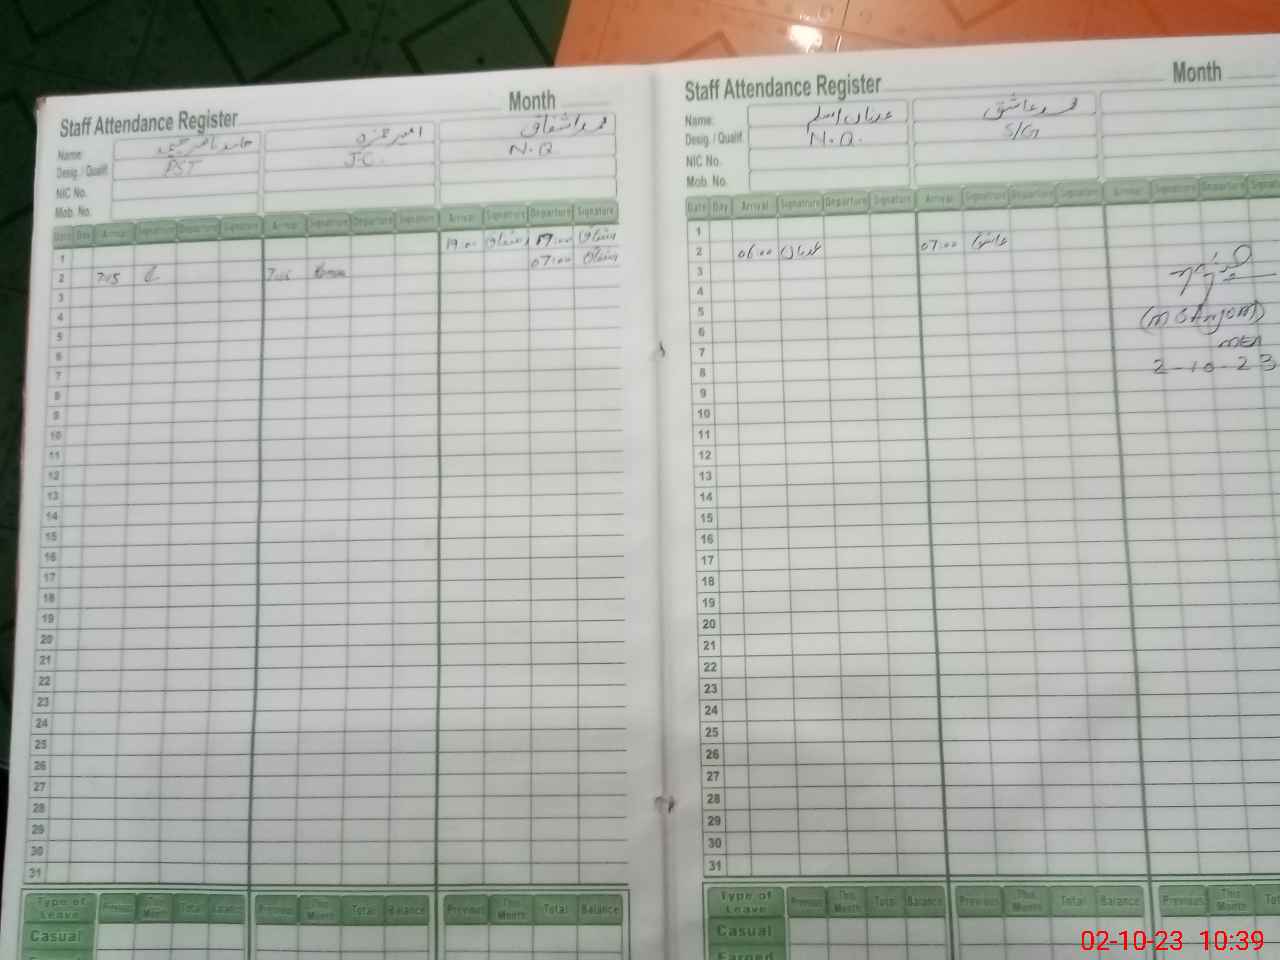 Staff Attendance Register Month
Name
Desig. / Qualif.
NIC No.
Mob. No.
محمد اشفاق
PST J-C. N.Q
Date Day Arrival Signature Departure Signature Arrival Signature Departure Signature Arrival Signature Departure Signature
1 19:00 اشفاق 07:00 اشفاق
2 7:15
3
4
5
6
7
8
9
10
11
12
13
14
15
16
17
18
19
20
21
22
23
24
25
26
27
28
29
30
31
Type of Leave Previous This Month Total Balance Previous This Month Total Balance Previous This Month Total Balance
Casual
Staff Attendance Register Month
Name: عدنان اسلم محمد عاشق
Desig. / Qualif. N.Q. S/G
NIC No.
Mob. No.
Date Day Arrival Signature Departure Signature Arrival Signature Departure Signature Arrival Signature Departure
1
2 06:00 عدنان 07:00 عاشق
3
4
5
6
7 MEA
8 2-10-23
9
10
11
12
13
14
15
16
17
18
19
20
21
22
23
24
25
26
27
28
29
30
31
Type of Leave Previous This Month Total Balance Previous This Month Total Balance Previous This Month
Casual
Earned
02-10-23 10:39